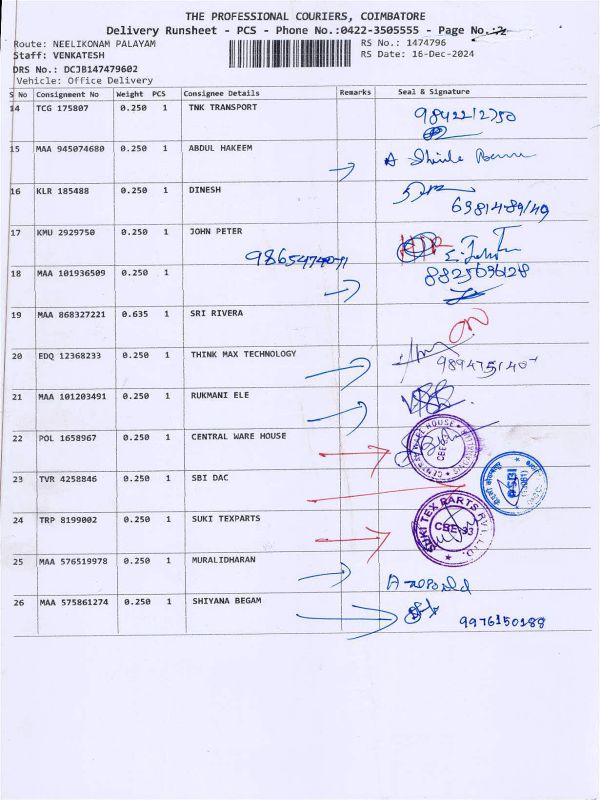 THE PROFESSIONAL COURIERS, COIMBATORE
Delivery Runsheet - PCS - Phone No.:0422-3505555 - Page No.:
Route: NEELIKONAM PALAYAM RS No.: 1474796
Staff: VENKATESH RS Date: 16-Dec-2024
DRS No.: DCJB147479602
Vehicle: Office Delivery
S No Consignment No Weight PCS Consignee Details Remarks Seal & Signature
14 TCG 175807 0.250 1 TNK TRANSPORT
9842212750
15 MAA 945074680 0.250 1 ABDUL HAKEEM
16 KLR 185488 0.250 1 DINESH
17 KMU 2929750 0.250 1 JOHN PETER
18 MAA 101936509 0.250 1
8825696128
19 MAA 868327221 0.635 1 SRI RIVERA
20 EDQ 12368233 0.250 1 THINK MAX TECHNOLOGY
21 MAA 101203491 0.250 1 RUKMANI ELE
22 POL 1658967 0.250 1 CENTRAL WARE HOUSE
23 TVR 4258846 0.250 1 SBI DAC
24 TRP 8199002 0.250 1 SUKI TEXPARTS
SUKI TEX PARTS PVT. LTD.
CBE-33
25 MAA 576519978 0.250 1 MURALIDHARAN
26 MAA 575861274 0.250 1 SHIYANA BEGAM
9976150188